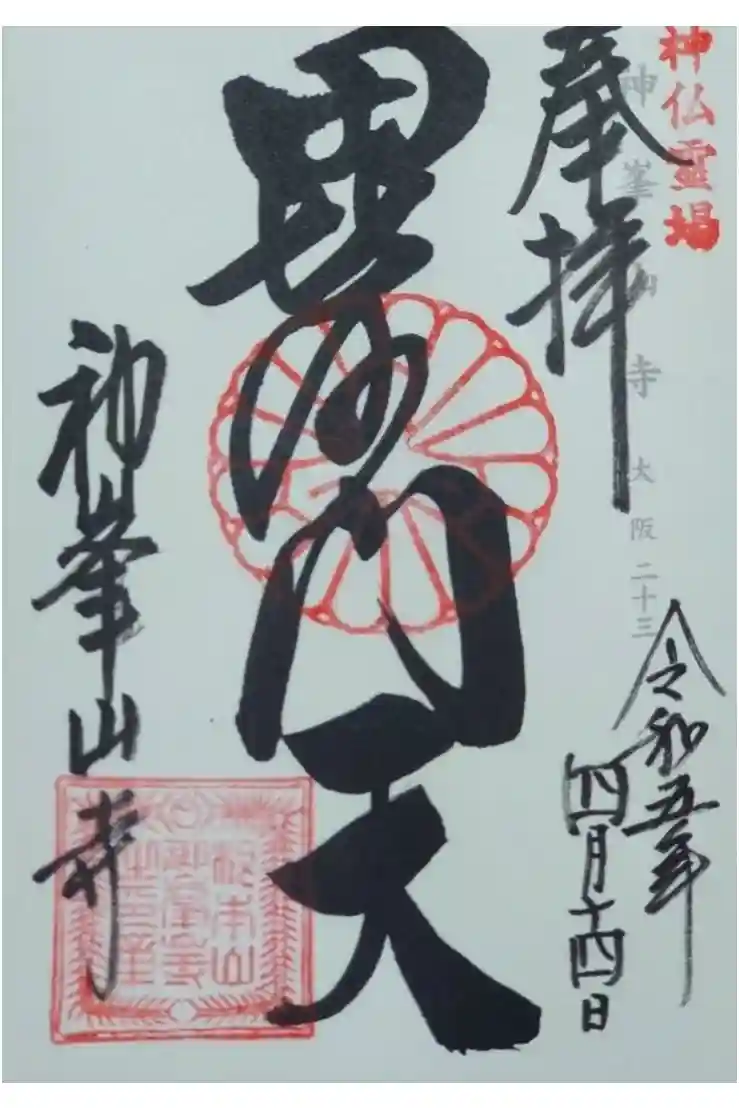 神仏霊場
神峯山寺 大阪 二十三
奉拝
令和五年
四月十四日
毘沙門天
神峯山寺